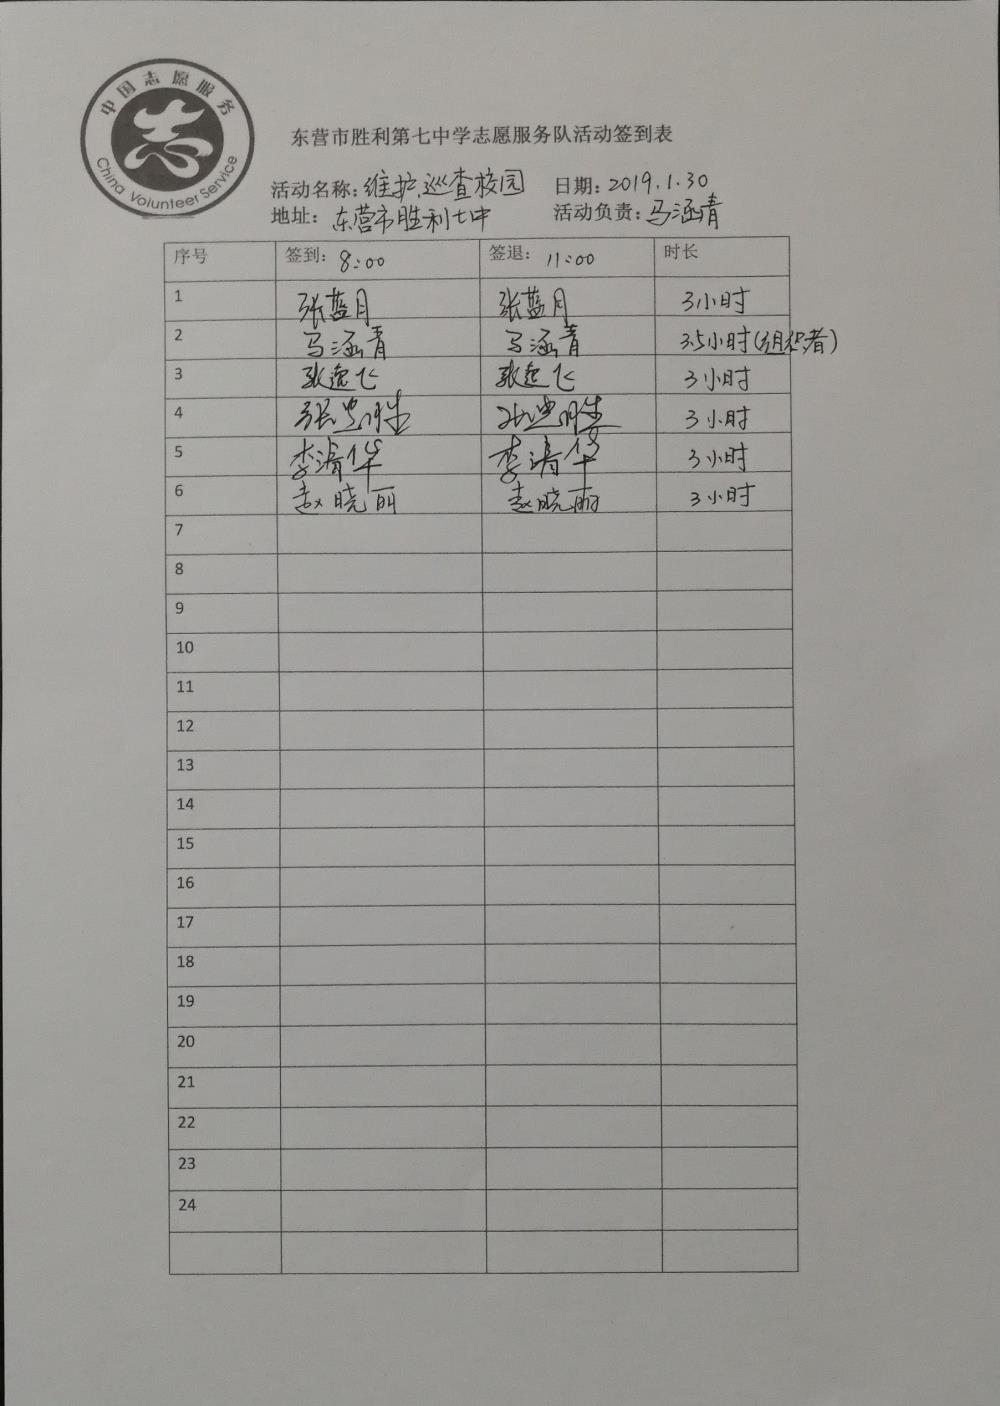 中国志愿服务
China Volunteer Service
东营市胜利第七中学志愿服务队活动签到表
活动名称：维护、巡查校园 日期：2019.1.30
地址：东营市胜利七中 活动负责：马涵青
序号 签到：8:00 签退：11:00 时长
1 张蓝月 张蓝月 3小时
2 马涵青 马涵青 3.5小时(组织者)
3 张逸飞 张逸飞 3小时
4 张忠胜 3小时
5 李清华 李清华 3小时
6 赵晓丽 赵晓丽 3小时
7
8
9
10
11
12
13
14
15
16
17
18
19
20
21
22
23
24